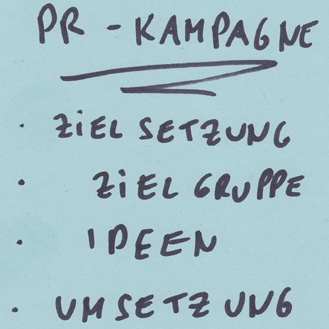 PR - KAMPAGNE
· ZIELSETZUNG
· ZIELGRUPPE
· IDEEN
· UMSETZUNG